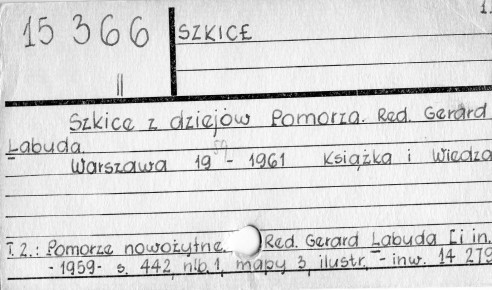 1.
15 366
SZKICE
II
Szkice z dziejów Pomorza. Red. Gerard
Łabuda.
Warszawa 1959 - 1961 Książka i Wiedza
T. 2.: Pomorze nowożytne. Red. Gerard Labuda [i in.
- 1959 - s. 442, nlb. 1, mapy 3, ilustr. - inw. 14 279